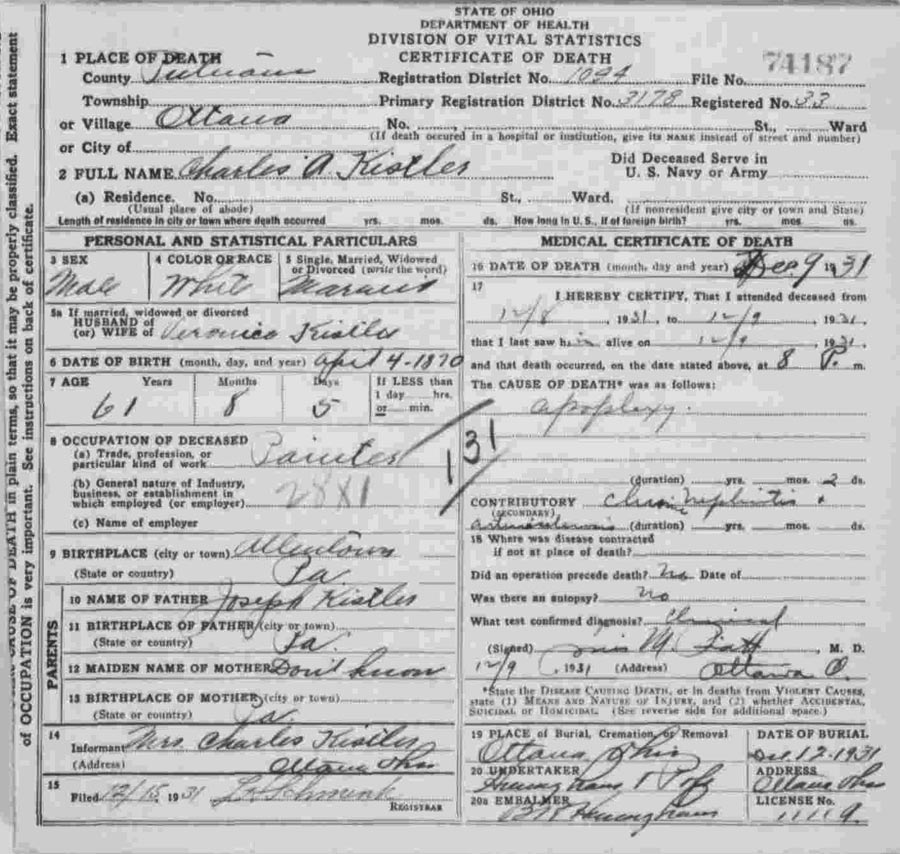 STATE OF OHIO
DEPARTMENT OF HEALTH
DIVISION OF VITAL STATISTICS
CERTIFICATE OF DEATH
1 PLACE OF DEATH
County Putnam Registration District No. 1094 File No. 74187
Township Primary Registration District No. 3178 Registered No. 33
or Village Ottawa No. St., Ward
(If death occured in a hospital or institution, give its NAME instead of street and number)
or City of
2 FULL NAME Charles A. Kistler Did Deceased Serve in U. S. Navy or Army
(a) Residence. No. St., Ward.
(Usual place of abode) (If nonresident give city or town and State)
Length of residence in city or town where death occurred yrs. mos. ds. How long in U. S., if of foreign birth? yrs. mos. ds.
PERSONAL AND STATISTICAL PARTICULARS
3 SEX 4 COLOR OR RACE 5 Single, Married, Widowed
or Divorced (write the word)
Male White Married
5a If married, widowed or divorced
HUSBAND of
(or) WIFE of Veronica Kistler
6 DATE OF BIRTH (month, day, and year) April 4-1870
7 AGE Years Months Days If LESS than
1 day hrs.
or min.
61 8 5
8 OCCUPATION OF DECEASED
(a) Trade, profession, or
particular kind of work Painter
(b) General nature of Industry,
business, or establishment in
which employed (or employer) 2881
(c) Name of employer
131
9 BIRTHPLACE (city or town) Allentown
(State or country) Pa
PARENTS
10 NAME OF FATHER Joseph Kistler
11 BIRTHPLACE OF FATHER (city or town)
(State or country) Pa.
12 MAIDEN NAME OF MOTHER Don't know
13 BIRTHPLACE OF MOTHER (city or town)
(State or country) Pa
14
Informant Mrs. Charles Kistler
(Address) Ottawa Ohio
15
Filed 12/15 1931
REGISTRAR
MEDICAL CERTIFICATE OF DEATH
16 DATE OF DEATH (month, day and year) Dec 9 1931
17
I HEREBY CERTIFY, That I attended deceased from
12/8, 1931, to 12/9, 1931,
that I last saw him alive on 12/9, 1931,
and that death occurred, on the date stated above, at 8 P. m.
The CAUSE OF DEATH* was as follows:
apoplexy.
(duration) yrs. mos. 2 ds.
CONTRIBUTORY nephritis +
(SECONDARY)
(duration) yrs. mos. ds.
18 Where was disease contracted
if not at place of death?
Did an operation precede death? No Date of
Was there an autopsy? no
What test confirmed diagnosis? Clinical
(Signed) M. D.
12/9, 1931 (Address) Ottawa O.
*State the DISEASE CAUSING DEATH, or in deaths from VIOLENT CAUSES,
state (1) MEANS AND NATURE OF INJURY, and (2) whether ACCIDENTAL,
SUICIDAL or HOMICIDAL. (See reverse side for additional space.)
19 PLACE of Burial, Cremation, or Removal DATE OF BURIAL
Ottawa Ohio Dec 12-1931
20 UNDERTAKER ADDRESS
Ottawa Ohio
20a EMBALMER LICENSE No.
CAUSE OF DEATH in plain terms, so that it may be properly classified. Exact statement
of OCCUPATION is very important. See instructions on back of certificate.